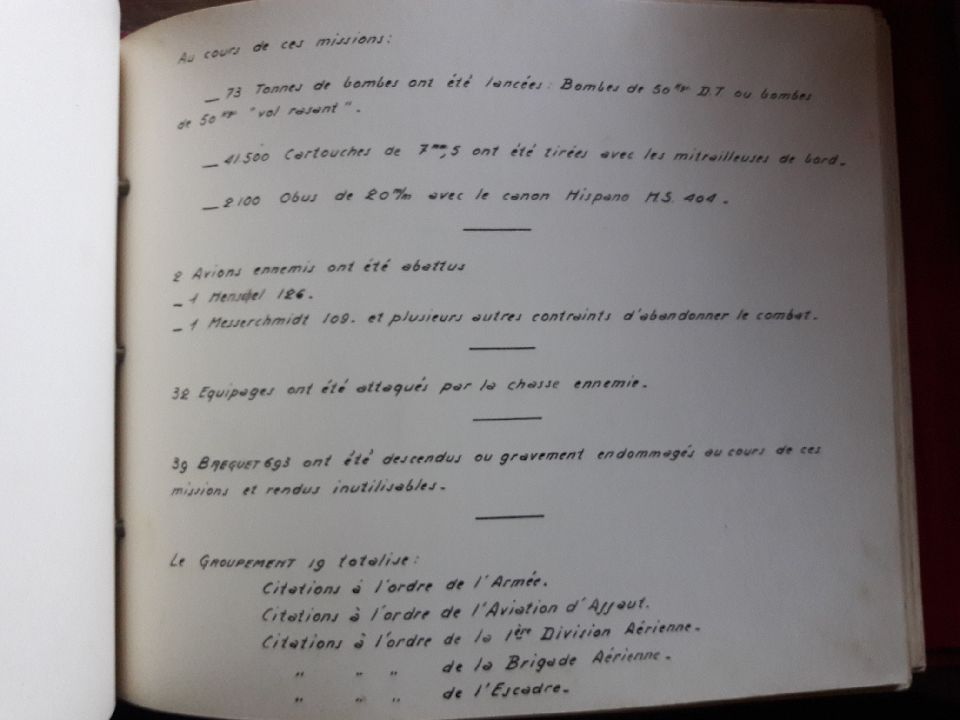 Au cours de ces missions:
_ 73 Tonnes de bombes ont été lancées: Bombes de 50 kgr D.T ou bombes
de 50 kgr "vol rasant".
_ 41.500 Cartouches de 7mm,5 ont été tirées avec les mitrailleuses de bord.
_ 2100 Obus de 20 m/m avec le canon Hispano H.S. 404.
2 Avions ennemis ont été abattus
_ 1 Henschel 126.
_ 1 Messerchmidt 109. et plusieurs autres contraints d'abandonner le combat.
32 Equipages ont été attaqués par la chasse ennemie.
39 BREGUET 693 ont été descendus ou gravement endommagés au cours de ces
missions et rendus inutilisables.
Le GROUPEMENT 19 totalise:
Citations à l'ordre de l'Armée.
Citations à l'ordre de l'Aviation d'Assaut.
Citations à l'ordre de la 1ère Division Aérienne.
" " " de la Brigade Aérienne.
" " " de l'Escadre.